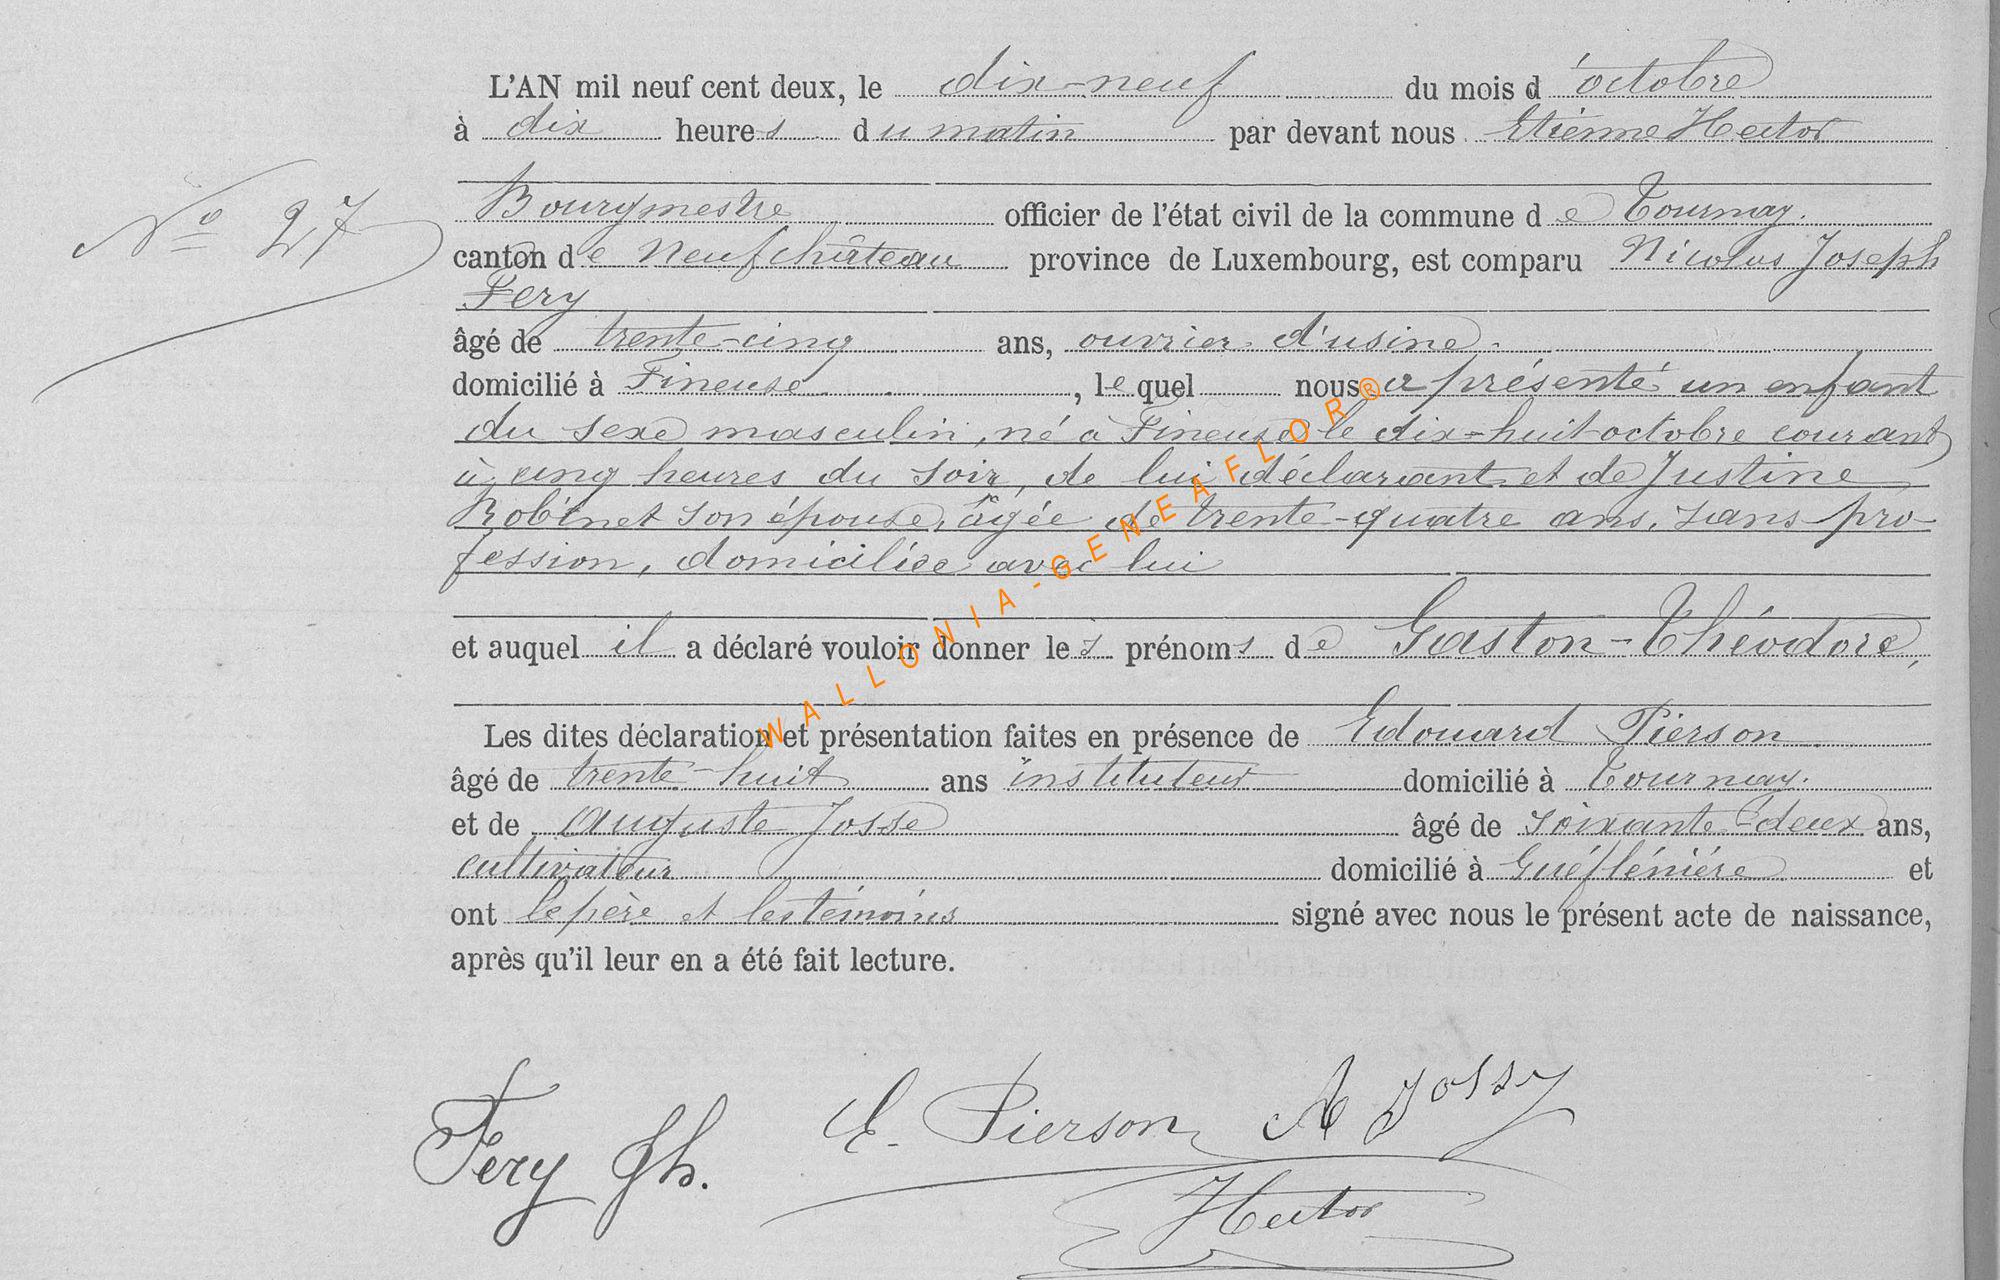 L'AN mil neuf cent deux, le dix-neuf du mois d'octobre
à dix heures du matin par devant nous Etienne Hector
Bourgmestre officier de l'état civil de la commune de Tournay.
N° 27
canton de Neufchâteau province de Luxembourg, est comparu Nicolas Joseph
Fery
âgé de trente-cinq ans, ouvrier d'usine.
domicilié à Fineuse, lequel nous a présenté un enfant
du sexe masculin, né à Fineuse le dix-huit octobre courant
à cinq heures du soir, de lui déclarant et de Justine
Robinet son épouse, âgée de trente-quatre ans, sans pro-
fession, domiciliée avec lui
et auquel il a déclaré vouloir donner les prénoms de Gaston-Théodore,
Les dites déclaration et présentation faites en présence de Edouard Pierson
âgé de trente-huit ans instituteur domicilié à Tournay.
et de Auguste Josse âgé de soixante-deux ans,
cultivateur domicilié à Gué et
ont le père et les témoins signé avec nous le présent acte de naissance,
après qu'il leur en a été fait lecture.
Fery Jh. E. Pierson A Jossy
Hector
WALLONIA-GENEAFLOR®